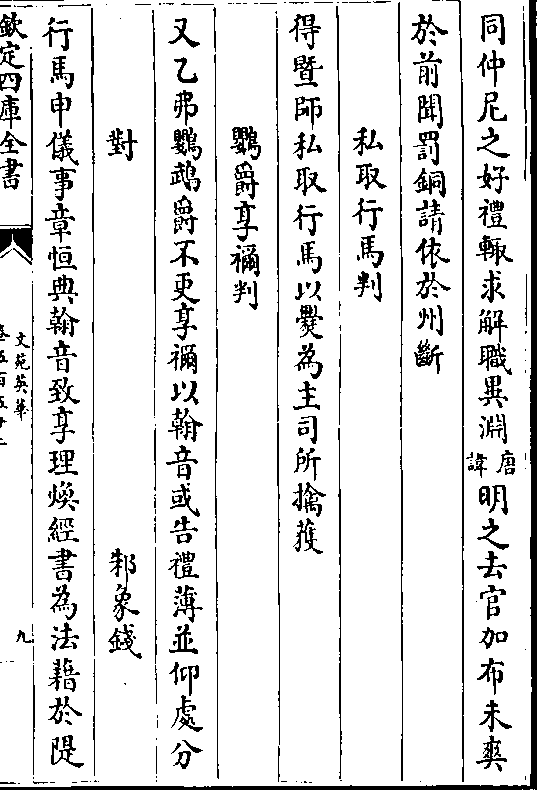 同仲尼之好禮輙求解職異淵唐諱明之去官加布未爽
於前聞罰銅請依於州斷
私取行馬判
得暨師私取行馬以㸑為主司所擒獲
鸚爵享禰判
又乙弗鸚鵡爵不更享禰以翰音或告禮薄並仰處分
對
邾象錢
行馬申儀事章恒典翰音致享理煥經書為法藉於隄
欽定四庫全書
文苑英華
卷五百五十二
九